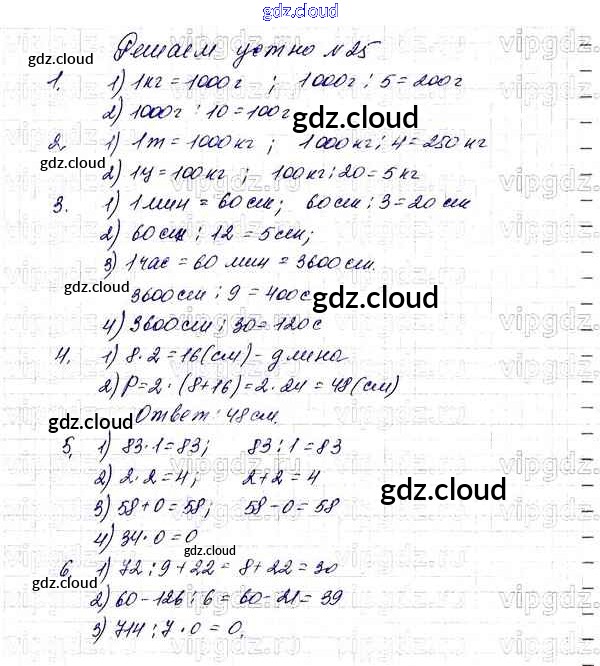 gdz.cloud
Решаем устно №25
gdz.cloud
1. 1) 1кг = 1000г ; 1000г : 5 = 200г
2) 1000г : 10 = 100г
gdz.cloud
2. 1) 1т = 1000кг ; 1000кг : 4 = 250кг
2) 1ц = 100кг ; 100кг : 20 = 5кг
3. 1) 1 мин = 60сек ; 60сек : 3 = 20сек
2) 60сек : 12 = 5сек ;
3) 1 час = 60 мин = 3600сек.
gdz.cloud
3600сек : 9 = 400с
gdz.cloud
4) 3600сек : 30 = 120с
4. 1) 8 · 2 = 16(см) - длина
2) P = 2 · (8+16) = 2 · 24 = 48(см)
Ответ : 48см.
gdz.cloud
5. 1) 83 · 1 = 83 ; 83 : 1 = 83
2) 2 · 2 = 4 ; 2 + 2 = 4
3) 58 + 0 = 58 ; 58 - 0 = 58
gdz.cloud
4) 34 · 0 = 0
gdz.cloud
6. 1) 72 : 9 + 22 = 8 + 22 = 30
gdz.cloud
2) 60 - 126 : 6 = 60 - 21 = 39
3) 714 : 7 · 0 = 0.